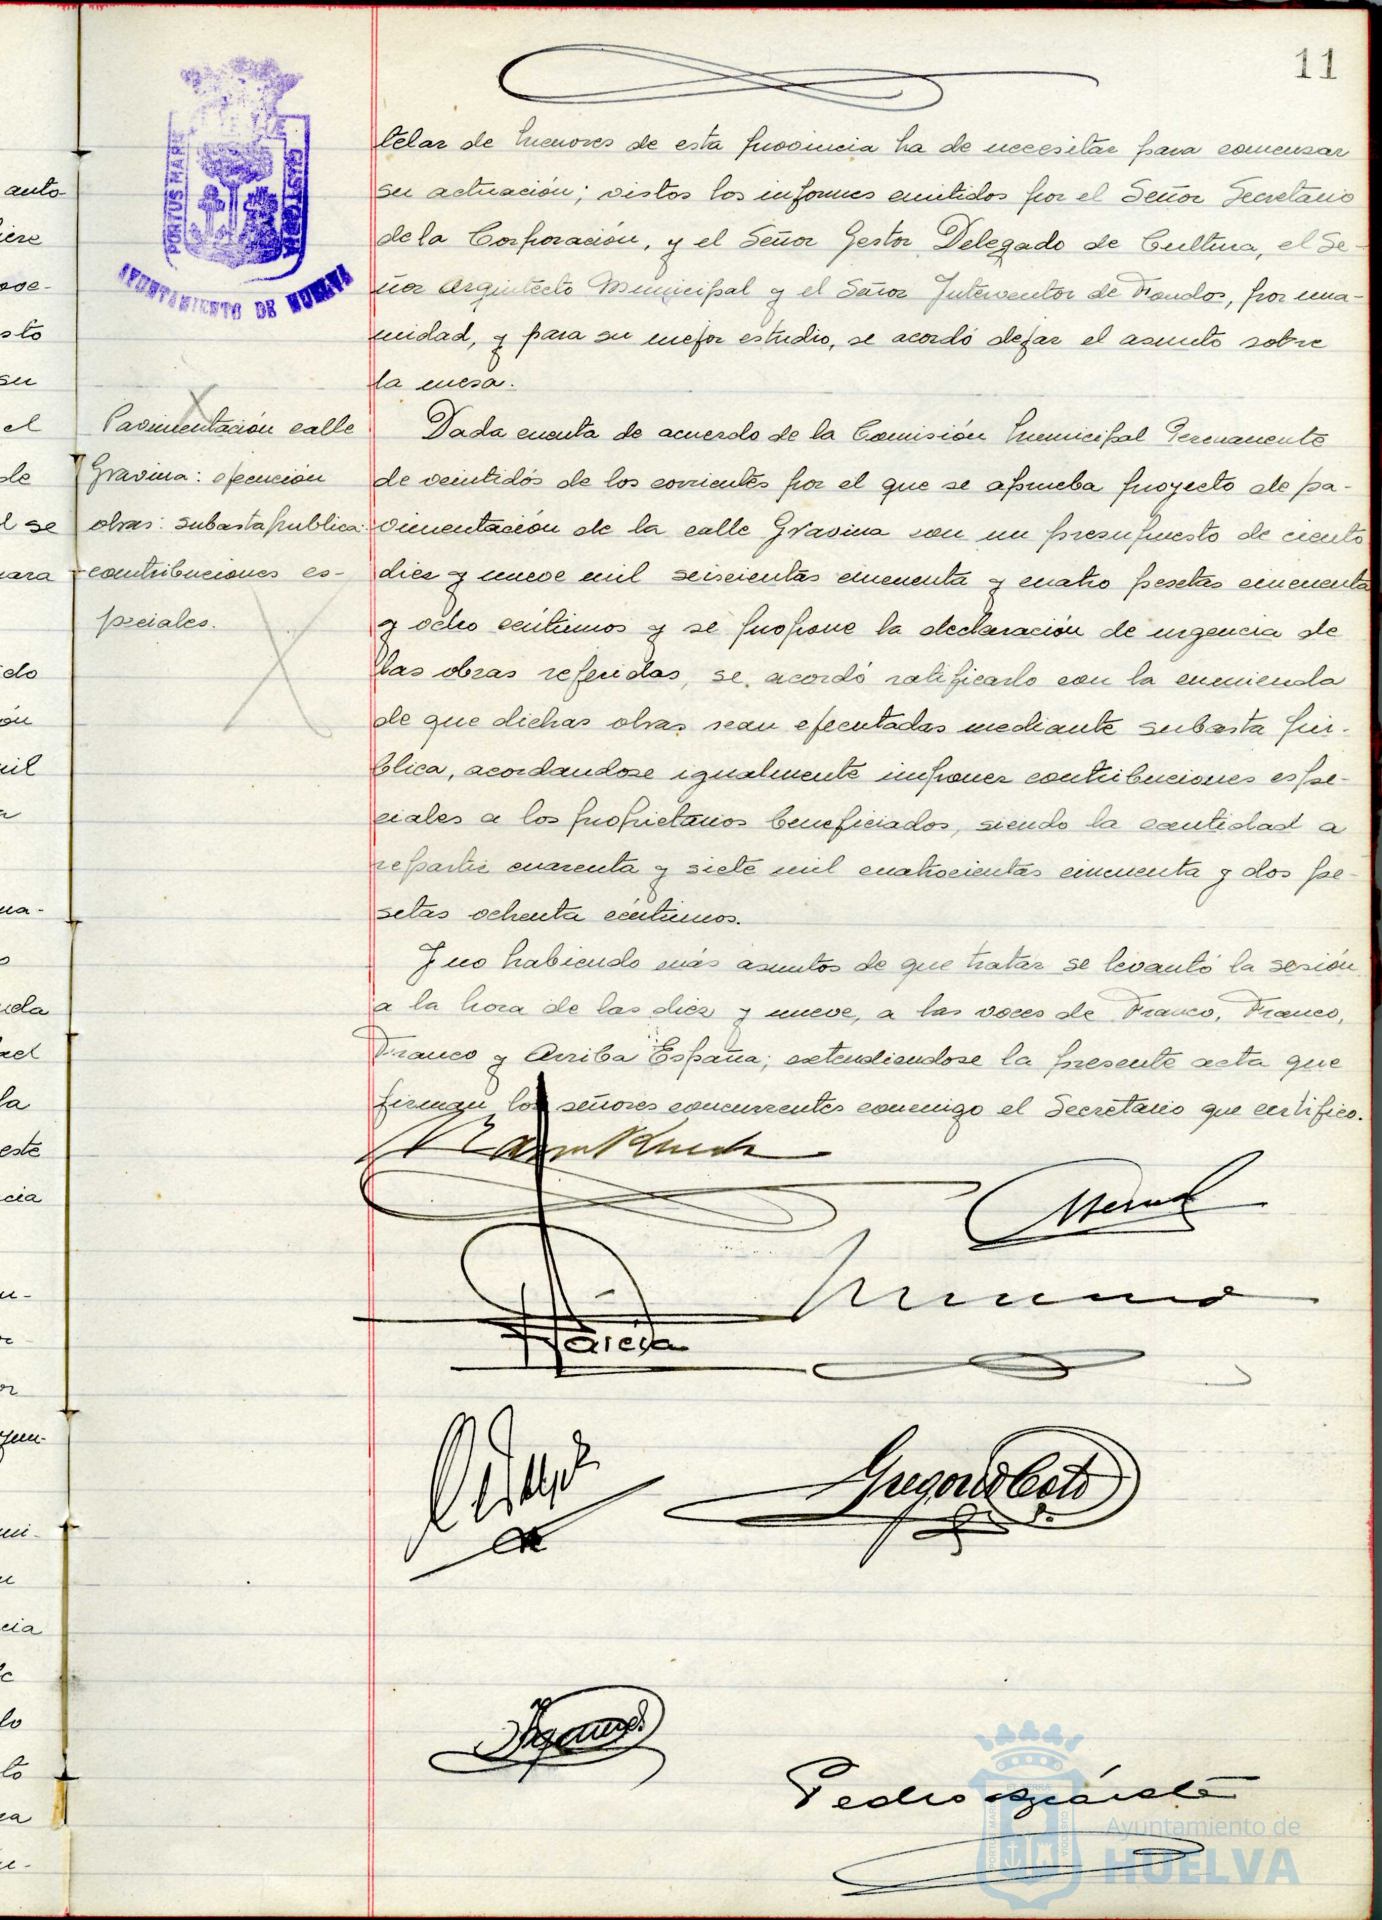 11
PORTUS MARIS
CUSTODIA
AYUNTAMIENTO DE HUELVA
telar de menores de esta provincia ha de necesitar para comenzar
su actuación; vistos los informes emitidos por el Señor Secretario
de la Corporación, y el Señor Gestor Delegado de Cultura, el Se-
ñor Arquitecto Municipal y el Señor Interventor de Fondos, por una-
nimidad, y para su mejor estudio, se acordó dejar el asunto sobre
la mesa.
Pavimentación calle
Gravina: ejecución
obras: subasta publica:
contribuciones es-
peciales.
Dada cuenta de acuerdo de la Comisión Municipal Permanente
de veintidós de los corrientes por el que se aprueba proyecto de pa-
vimentación de la calle Gravina con un presupuesto de ciento
diez y nueve mil seiscientas cincuenta y cuatro pesetas cincuenta
y ocho céntimos y se propone la declaración de urgencia de
las obras referidas, se acordó ratificarlo con la enmienda
de que dichas obras sean ejecutadas mediante subasta pú-
blica, acordandose igualmente imponer contribuciones espe-
ciales a los propietarios beneficiados, siendo la cantidad a
repartir cuarenta y siete mil cuatrocientas cincuenta y dos pe-
setas ochenta céntimos.
Y no habiendo más asuntos de que tratar se levantó la sesión
a la hora de las diez y nueve, a las voces de Franco, Franco,
Franco y Arriba España; extendiendose la presente acta que
firman los señores concurrentes conmigo el Secretario que certifico.
García
Gregorio Coto
Pedro
Ayuntamiento de
HUELVA